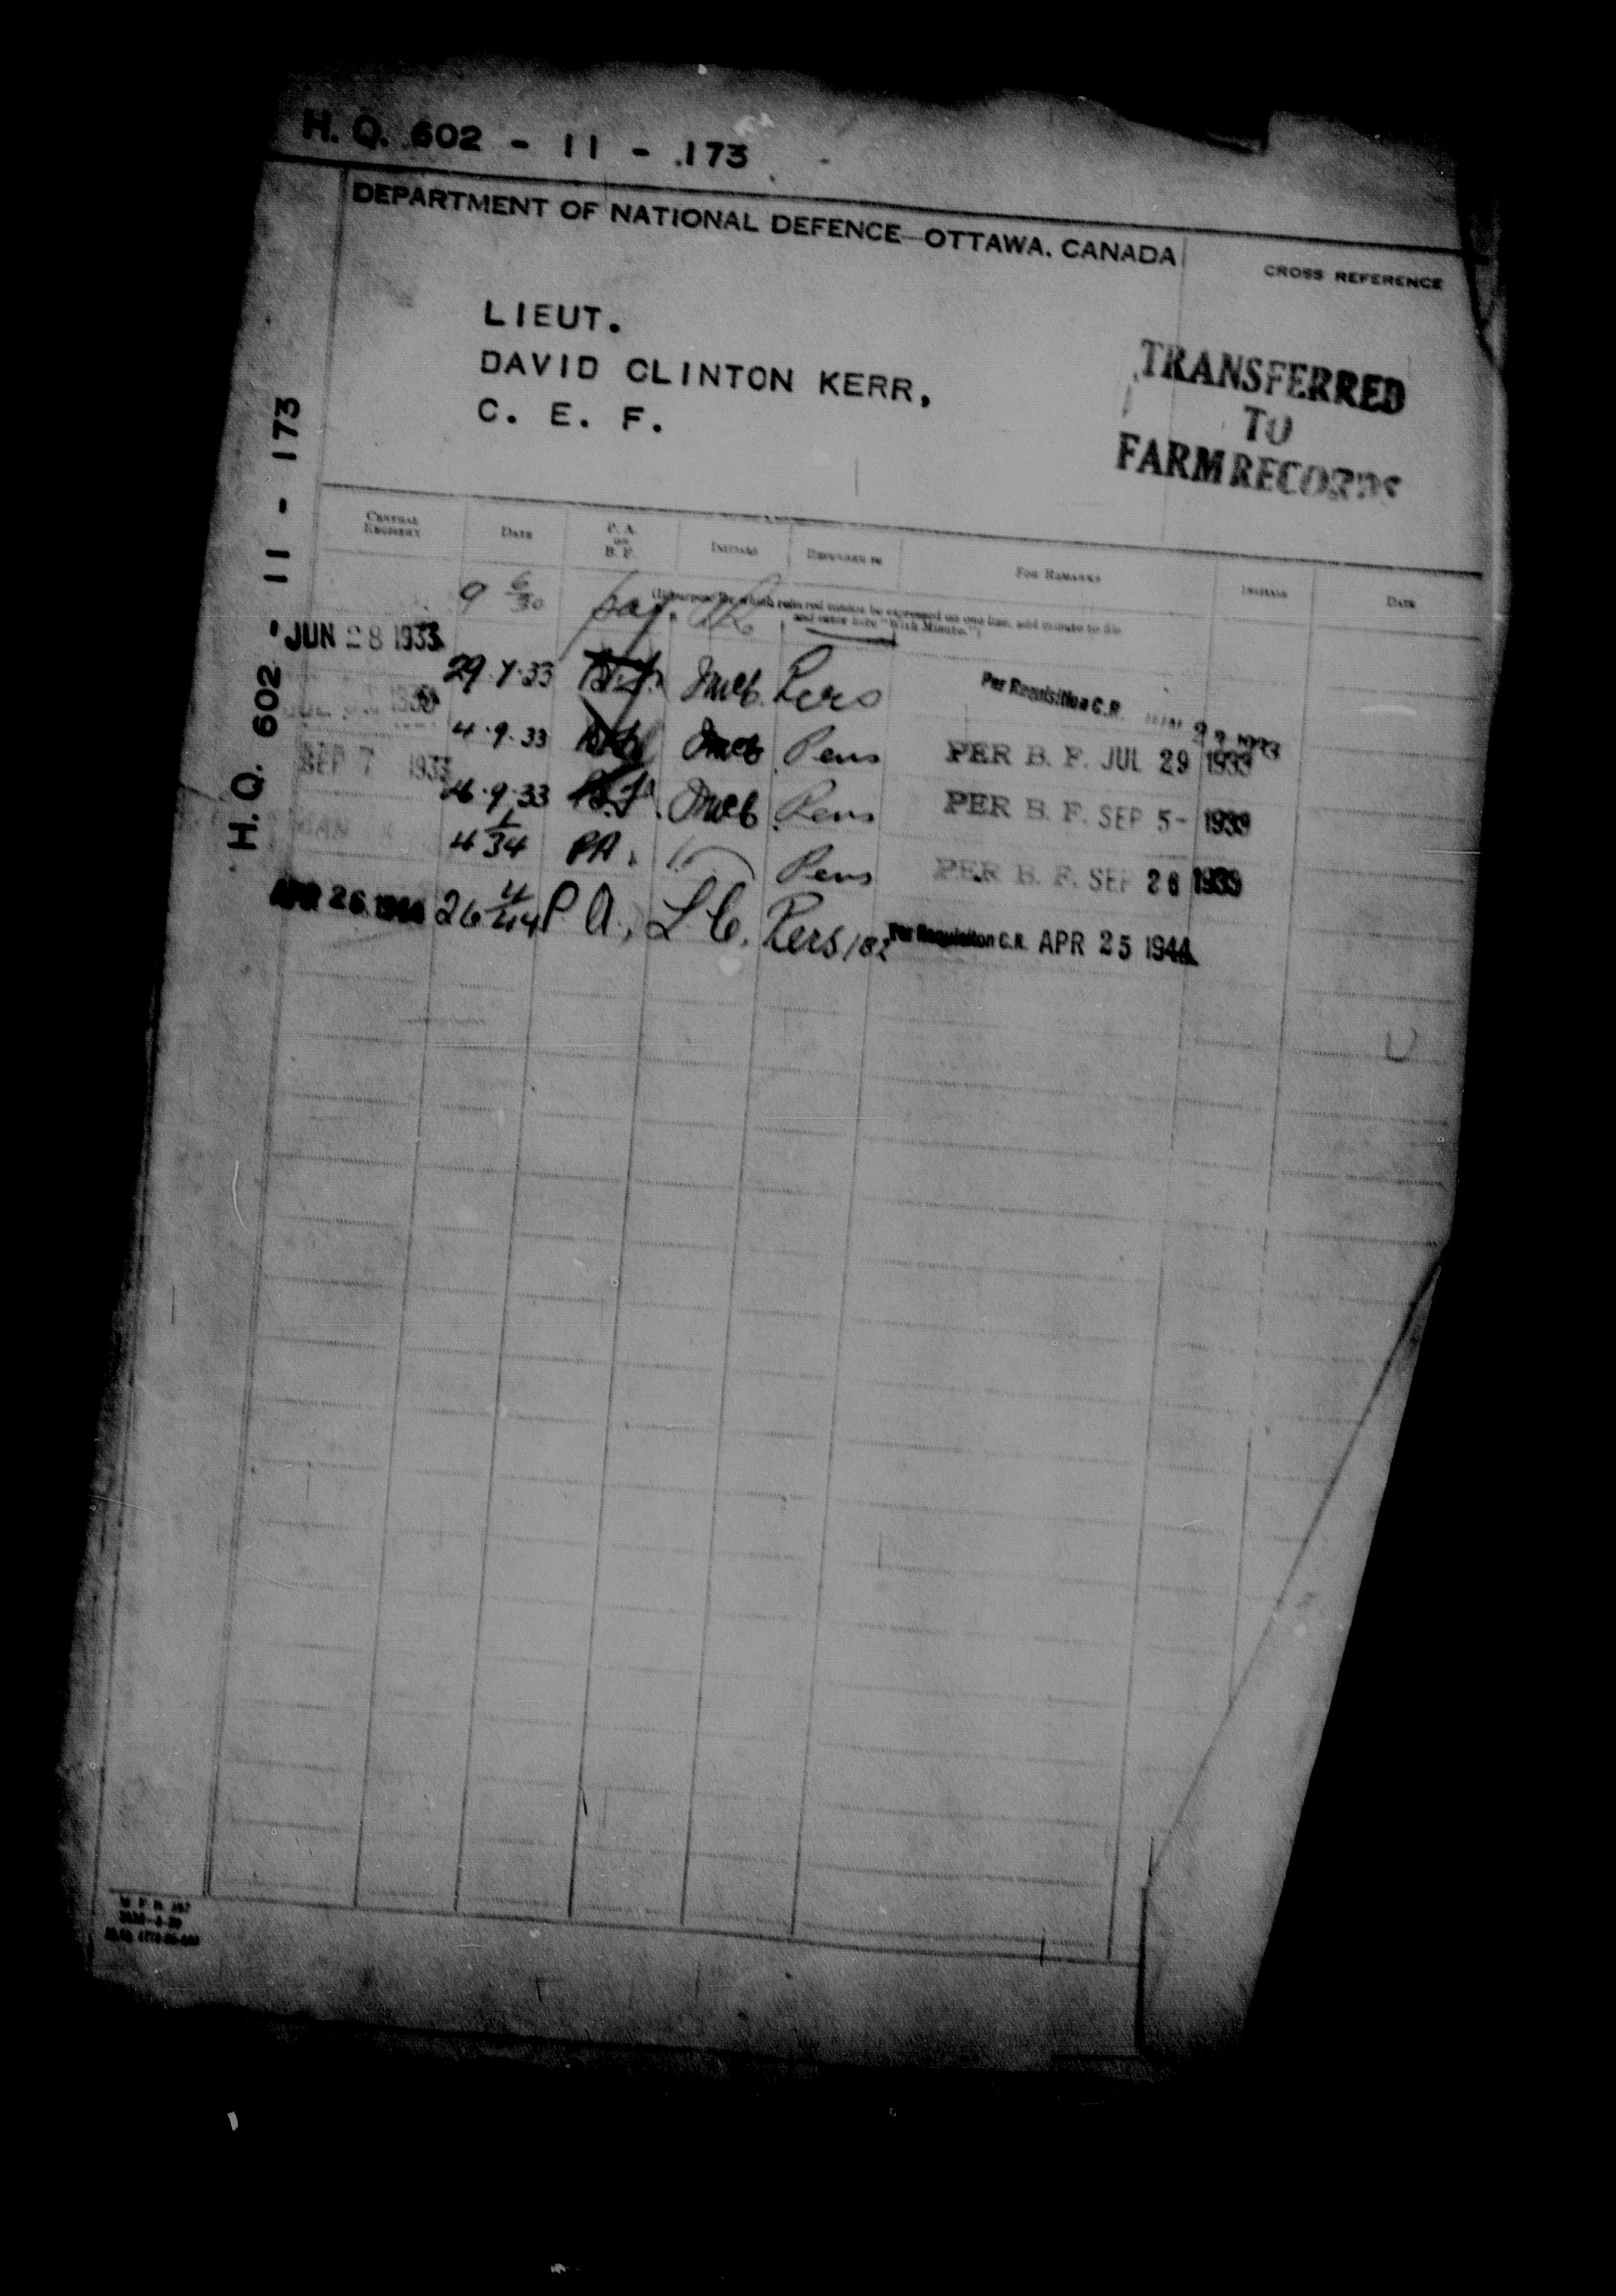 H. Q. 602 - 11 - 173
DEPARTMENT OF NATIONAL DEFENCE—OTTAWA, CANADA
CROSS REFERENCE
LIEUT.
DAVID CLINTON KERR,
C. E. F.
TRANSFERRED
TO
FARM RECORDS
H. Q. 602 11 - 173
CENTRAL REGISTRY DATE P. A. OR B. F. INITIALS REFERRED TO FOR REMARKS INITIALS DATE
(If purpose for which referred cannot be expressed on one line, add minute to file
and enter here "With Minute.")
9 6/30
JUN 28 1933 29.7.33 B.F. Pers Per Requisition C.R.
4.9.33 Pens PER B. F. JUL 29 1933
SEP 7 1933 26.9.33 B.F. Pens PER B. F. SEP 5- 1933
4 1/34 PA. Pens PER B. F. SEP 26 1933
APR 26 1944 26 4/44 P.A., L.C. Pers 182 Per Requisition C.R. APR 25 1944